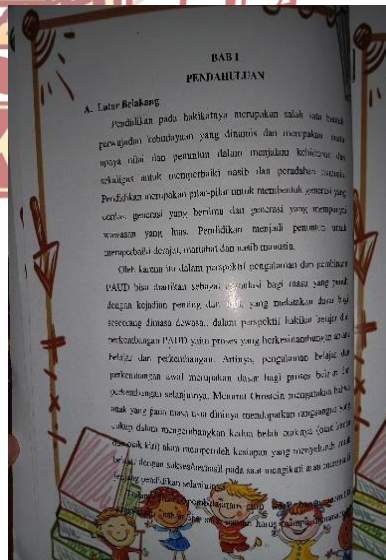 BAB I
PENDAHULUAN
A. Latar Belakang
Pendidikan pada hakikatnya merupakan salah satu bentuk
perwujudan kebudayaan yang dinamis dan merupakan suatu
upaya nilai dan penuntun dalam menjalani kehidupan dan
sekaligus untuk memperbaiki nasib dan peradaban manusia.
Pendidikan merupakan pilar-pilar untuk membentuk generasi yang
cerdas, generasi yang berilmu dan generasi yang mempunyai
wawasan yang luas. Pendidikan menjadi penuntun untuk
memperbaiki derajat, martabat dan nasib manusia.
Oleh karena itu dalam perspektif pengalaman dan pembinaan
PAUD bisa diartikan sebagai bagi masa yang penuh
dengan kejadian penting dan yang meletakkan dasar bagi
seseorang dimasa dewasa.. dalam perspektif hakikat belajar dan
perkembangan PAUD yaitu proses yang berkesinambungan antara
belajar dan perkembangan. Artinya, pengalaman belajar dan
perkembangan awal merupakan dasar bagi proses belajar dan
perkembangan selanjutnya. Menurut Ornstein mengatakan bahwa
anak yang pada masa usia dininya mendapatkan rangsangan yang
cukup dalam mengembangkan kedua belah otaknya (otak kanan
dan otak kiri) akan memperoleh kesiapan yang menyeluruh untuk
belajar dengan sukses/berhasil pada saat mengikuti atau memasuki
jenjang pendidikan selanjutnya.
pembelajaran
harus